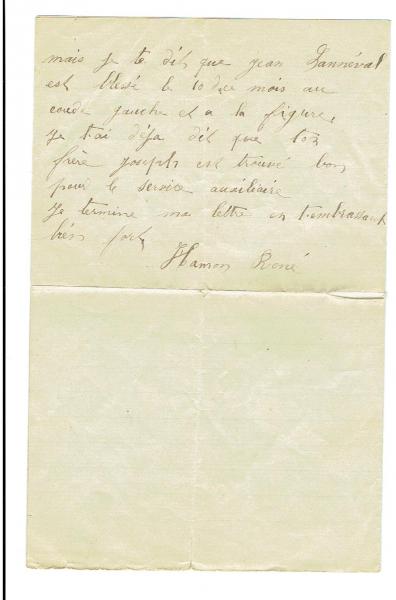 mais je te dit que jean Lannéval
est blessé le 10 du ce mois au
coude gauche et a la figure,
Je t'ai déja dit que ton
frère joseph est trouvé bon
pour le service auxiliaire
Je termine ma lettre en t'embrassant
très fort
Hamon René